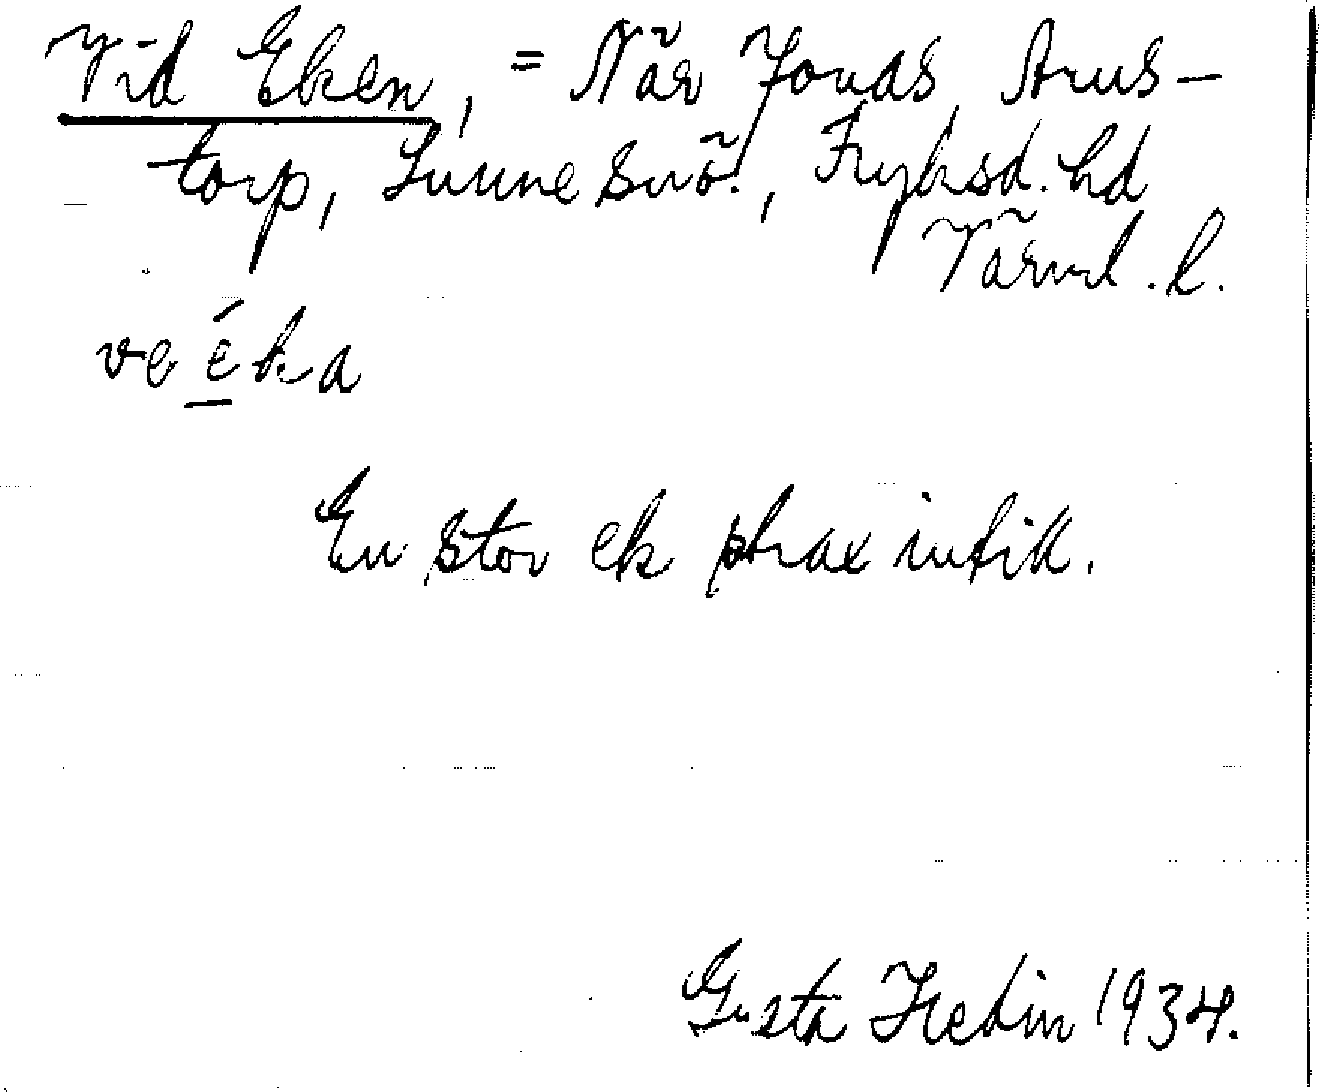 Vid Eken, = När Jonas, Arns-
torp, Sunne snö., Fryksd. hd
Värml. l.
ve éka
En stor ek strax intill.
Gösta Hedin 1934.